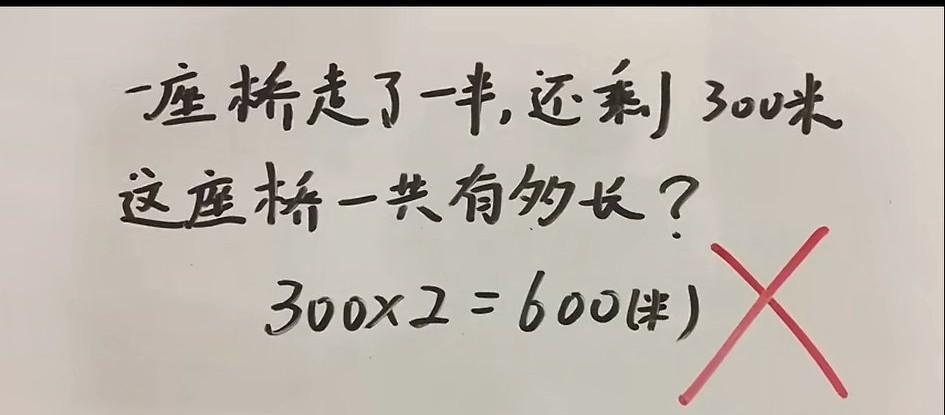 一座桥走了一半,还剩300米
这座桥一共有多长?
300×2=600(米)